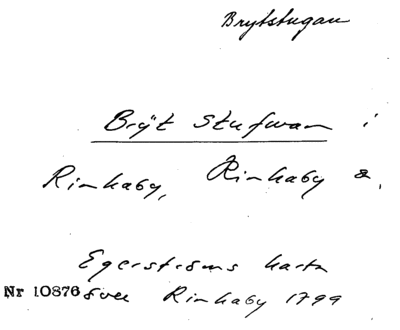 Brytstugan
Bryt Stufwan i
Rinkaby, Rinkaby s,
Egerströms karta
Nr 10876 över Rinkaby 1799